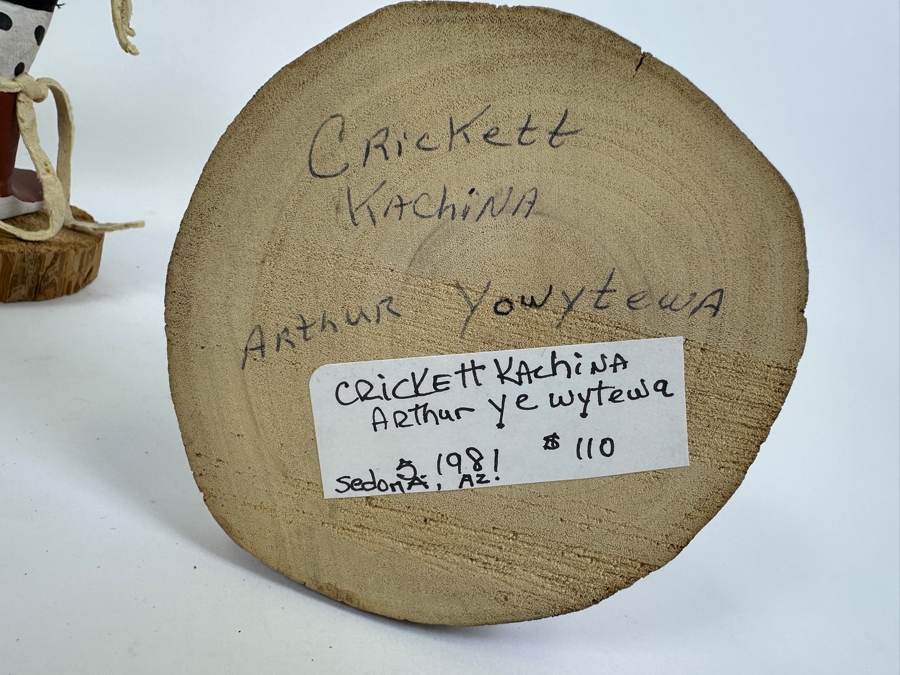 Crickett
KAchiNA
Arthur Yowytewa
CRICKEtt KAchiNA
Arthur Ye wytewa
5 1981 $ 110
SedonA, AZ.